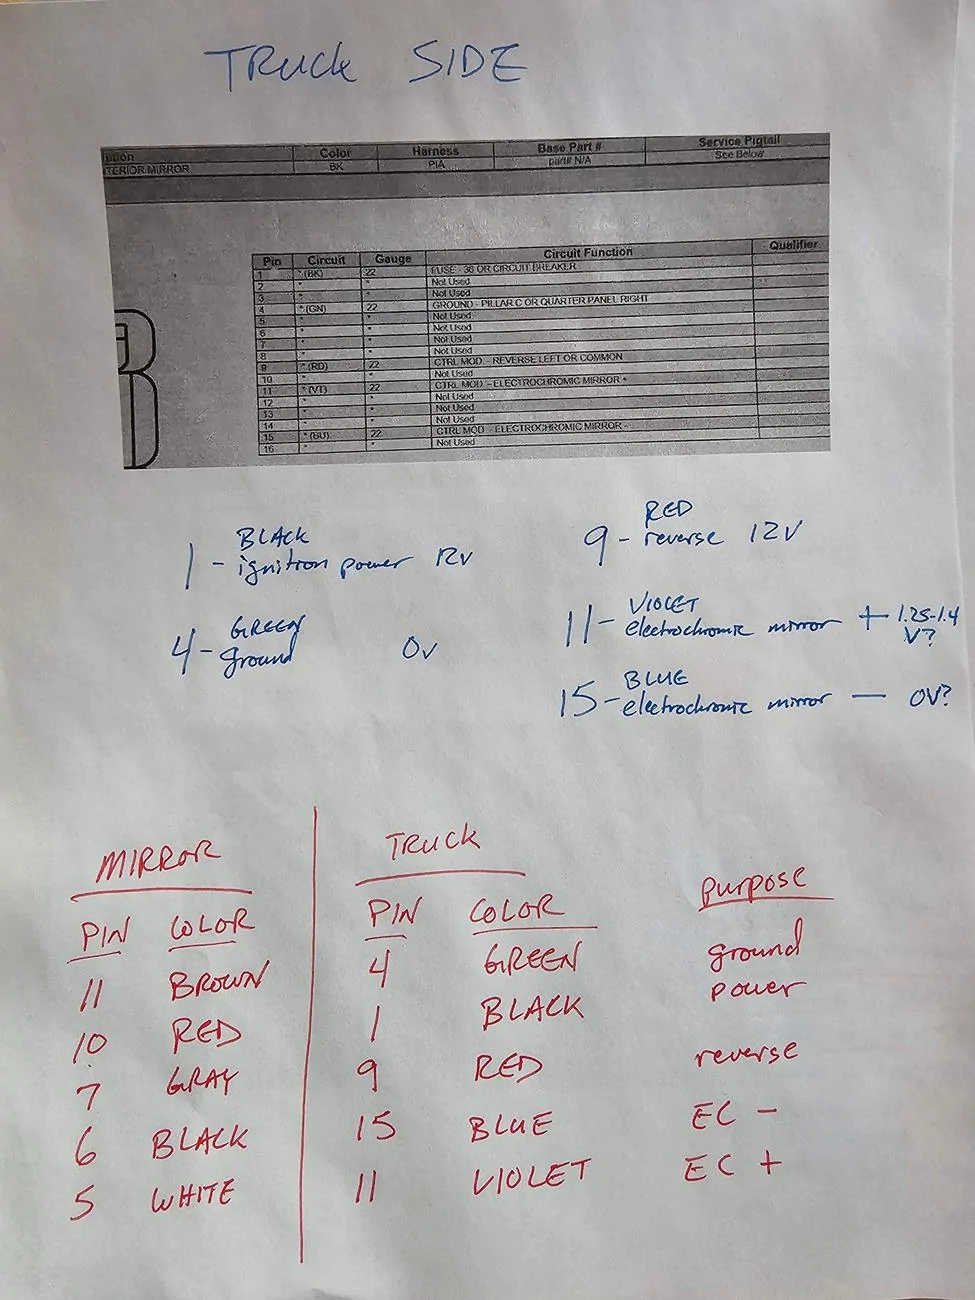 TRUCK SIDE
Color Harness Base Part # Service Pigtail
TERIOR MIRROR BK PIA part# N/A See Below
Pin Circuit Gauge Circuit Function Qualifier
1 * (BK) 22 FUSE - 36 OR CIRCUIT BREAKER
2 * * Not Used
3 * * Not Used
4 * (GN) 22 GROUND - PILLAR C OR QUARTER PANEL RIGHT
5 * * Not Used
6 * * Not Used
7 * * Not Used
8 * * Not Used
9 * (RD) 22 CTRL MOD - REVERSE LEFT OR COMMON
10 * * Not Used
11 * (VT) 22 CTRL MOD - ELECTROCHROMIC MIRROR +
12 * * Not Used
13 * * Not Used
14 * * Not Used
15 * (BU) 22 CTRL MOD - ELECTROCHROMIC MIRROR -
16 * * Not Used
BLACK
1 - ignition power 12v
GREEN
4 - ground 0v
RED
9 - reverse 12V
VIOLET
11 - electrochromic mirror + 1.25-1.4 V?
BLUE
15 - electrochromic mirror - 0V?
MIRROR TRUCK
PIN COLOR PIN COLOR purpose
11 BROWN 4 GREEN ground
10 RED 1 BLACK power
7 GRAY 9 RED reverse
6 BLACK 15 BLUE EC -
5 WHITE 11 VIOLET EC +